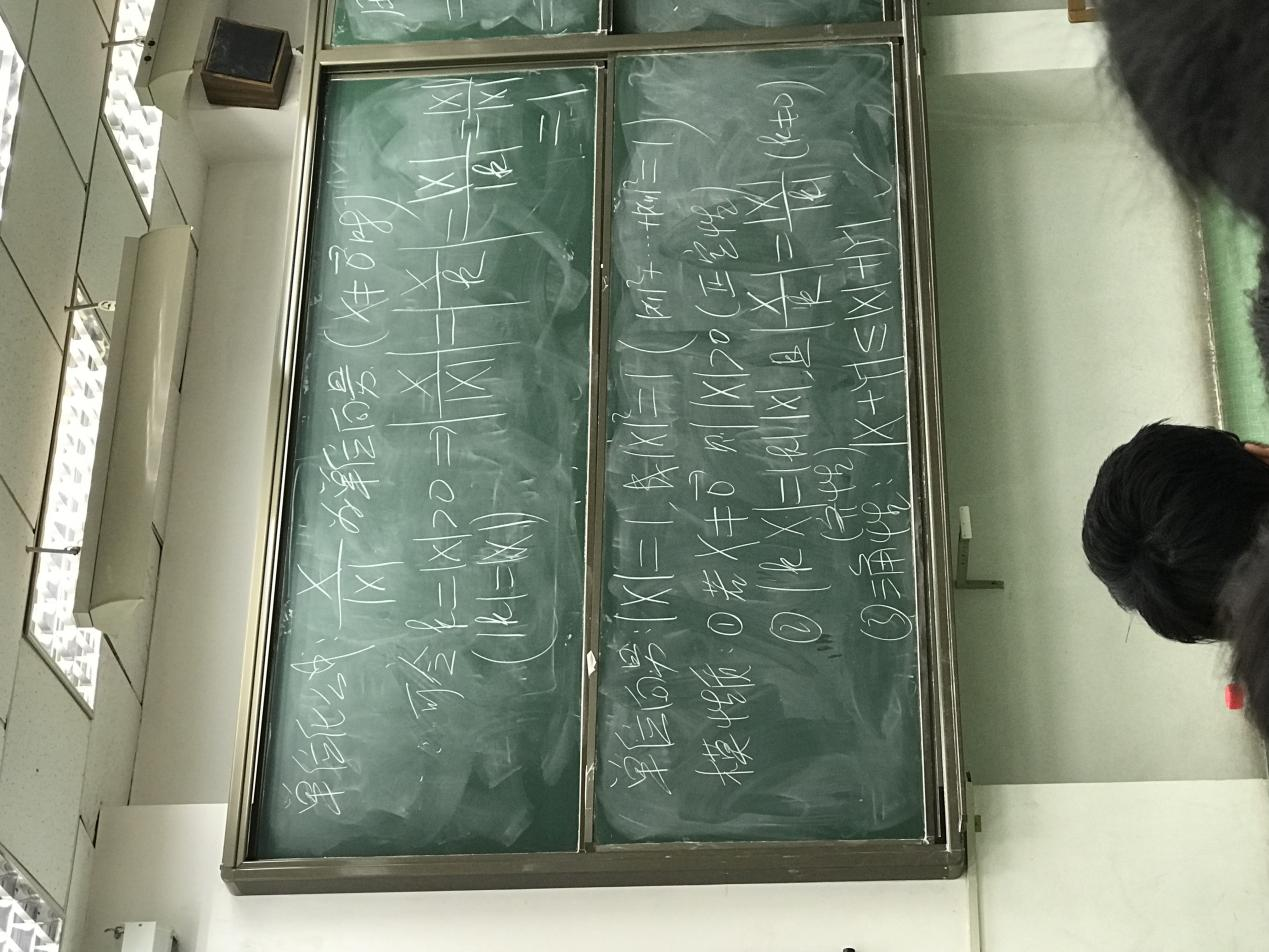 单位化公式: X/|X| 必为单位向量 (X≠0⃗时)
∵可令 k=|X|>0 ⇒ |X/|X|| = |X/k| = |X|/|k| = |X|/|X|
(|k|=|X|) =1
单位向量: |X|=1, 或|X|²=1 (|x₁|²+…+|xₙ|²=1)
模性质: ① 若X≠0⃗ 则|X|>0 (正定性)
② |kX|=|k||X|,且|X/k|=|X|/|k| (k≠0)
(齐性)
③ 三角性: |X+Y|≤|X|+|Y| ✓